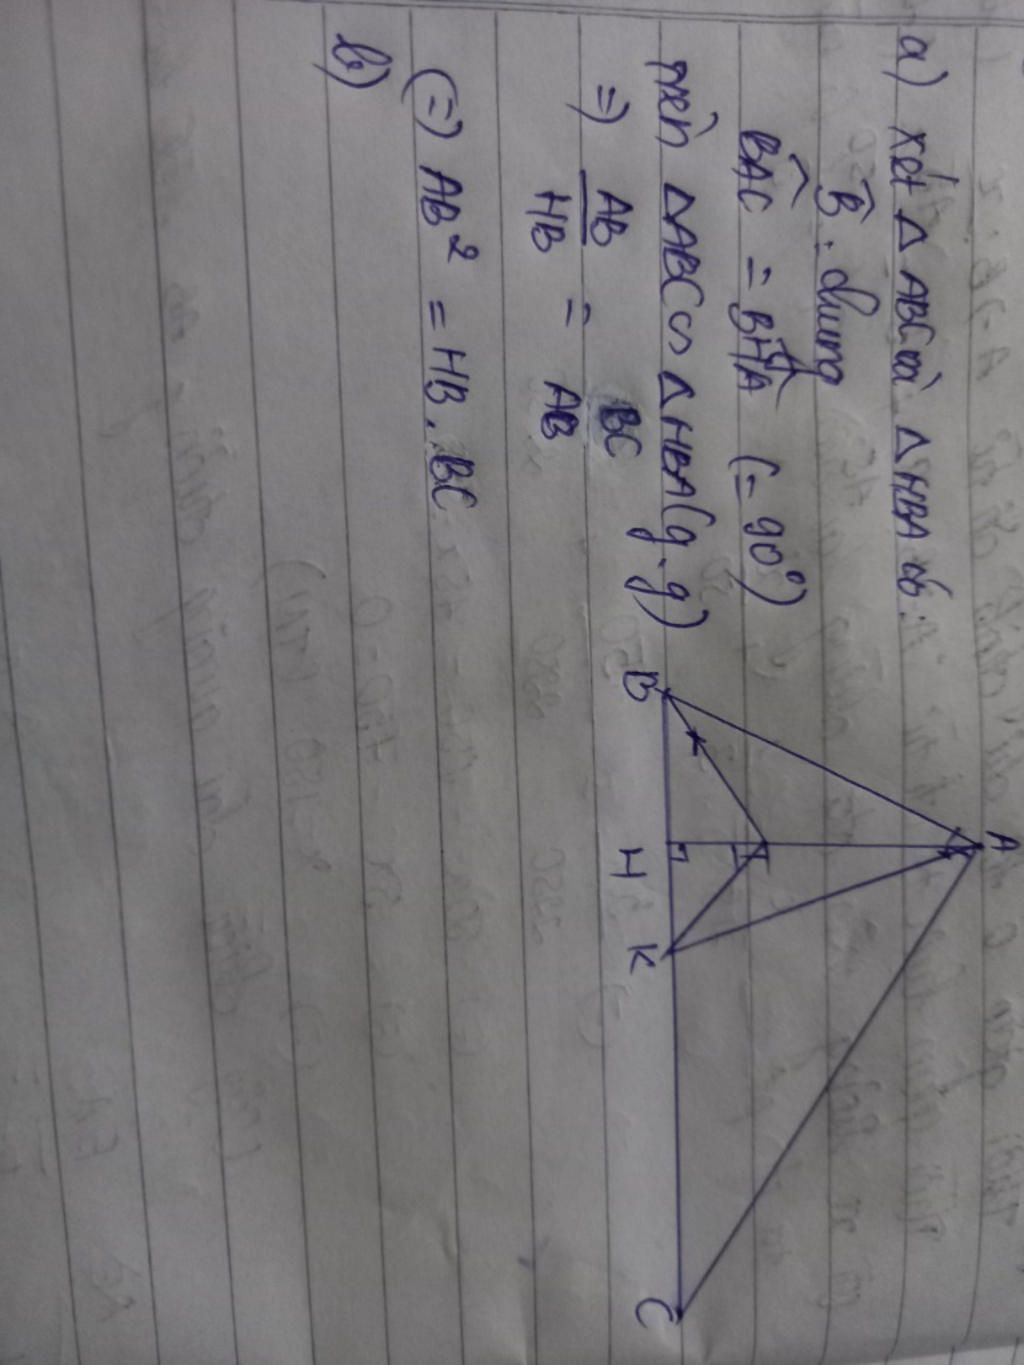 a) xét Δ ABC và Δ HBA có:
B̂ : chung
BAC = BHA (= 90°)
nên ΔABC ∽ ΔHBA (g.g)
=> AB/HB = BC/AB
(=) AB² = HB. BC
b)
A
B
I
H
K
C